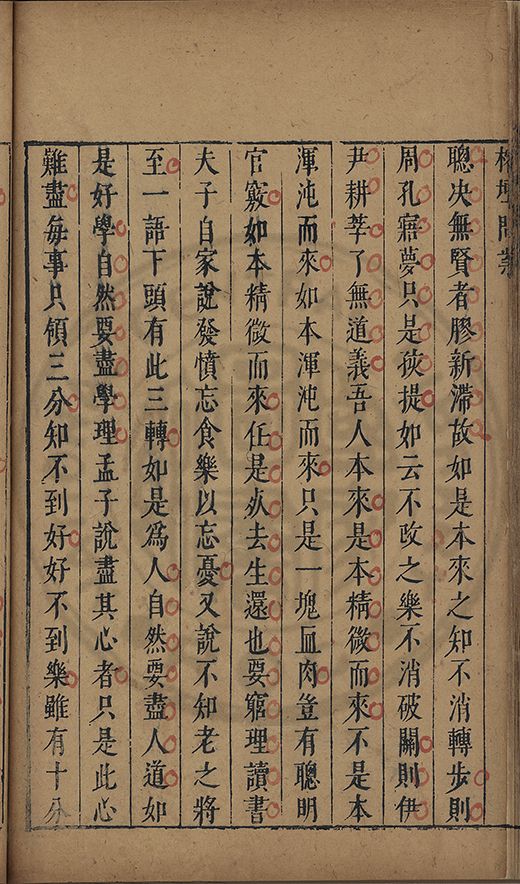 榕壇問業
聰決無賢者膠新滯故如是本來之知不消轉步則
周孔寤夢只是孩提如云不改之樂不消破關則伊
尹耕莘了無道義吾人本來是本精微而來不是本
渾沌而來如本渾沌而來只是一塊血肉豈有聰明
官竅如本精微而來任是死去生還也要窮理讀書
夫子自家說發憤忘食樂以忘憂又說不知老之將
至一語下頭有此三轉如是為人自然要盡人道如
是好學自然要盡學理孟子說盡其心者只是此心
難盡每事只領三分知不到好好不到樂雖有十分